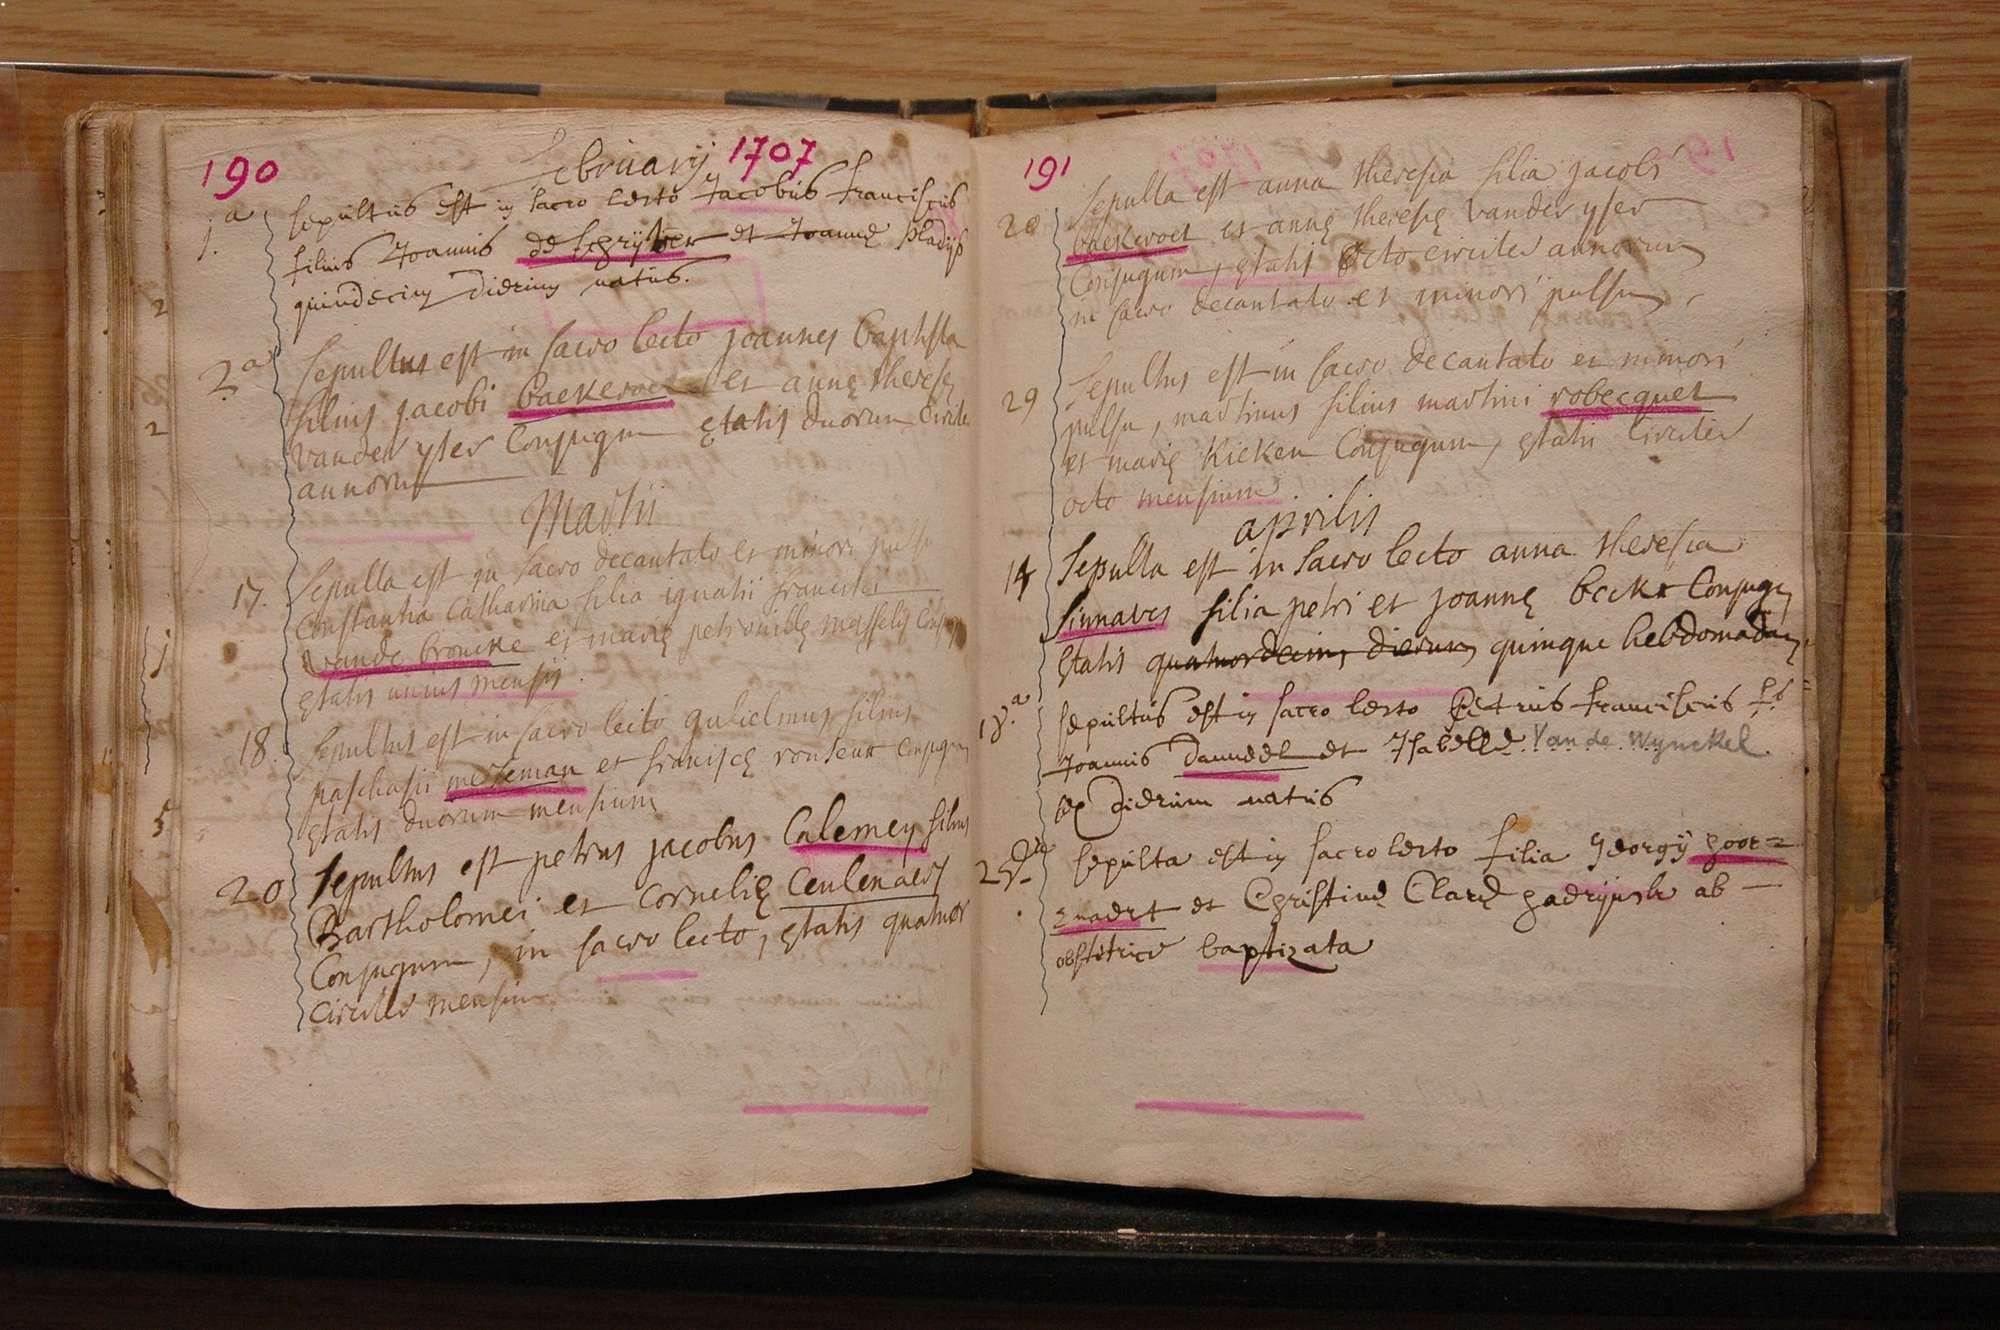 190
February 1707
1.a sepultus est in sacro lecto Jacobus franciscus
filius Joannis de schryver et Joannę
quindecim dierum natus.
2a Sepultus est in sacro lecto joannes baptista
filius jacobi baekeroot et annę theresę
vander yser Conjugum ętatis duorum circiter
annorum
Martii
17. Sepulta est in sacro decantato et minori pulsu
Constantia Catharina filia ignatii francisci
vande broucke et marię petronillę masselis
ętatis unius mensis.
18. Sepultus est in sacro lecto gulielmus filius
paschasii mesteman et franciscę conjugum
ętatis duorum mensium
20 Sepultus est petrus jacobus Calemeyn filius
Bartholomei et Cornelię Ceulenaers
Conjugum, in sacro lecto, ętatis quatuor
circiter mensium
191
20 Sepulta est anna theresia filia jacobi
baekeroot et annę theresię vander yser
Conjugum, ętatis octo circiter annorum
in sacro decantato et minori pulsu,
29 Sepultus est in sacro decantato et minori
pulsu, martinus filius martini robecquet
et marię kieken Conjugum, ętatis circiter
octo mensium
aprilis
14 Sepulta est in sacro lecto anna theresia
sinnaves filia petri et joannę Conjugum
ętatis quatuordecim dierum quinque hebdomadarum
18.a sepultus est in sacro lecto Petrus franciscus fs
Joannis danneel et Isabellę Van de Wynckel
sex dierum natus
sepulta est in sacro lecto filia Georgy goor=
et Christinę Clarę ab
obstetrice baptizata